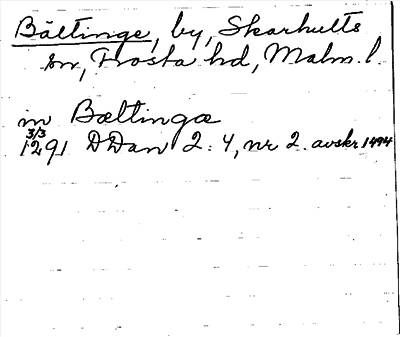 Bältinge, by, Skarhults
sn, Frosta hd, Malm. l.
in Bæltingæ
3/3
1291 DDan 2:4, nr 2. avskr 1494